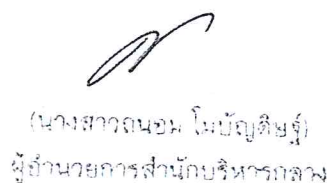 (นางสาวถนอม โนบัญดิษฐ์)
ผู้อำนวยการสำนักบริหารกลาง